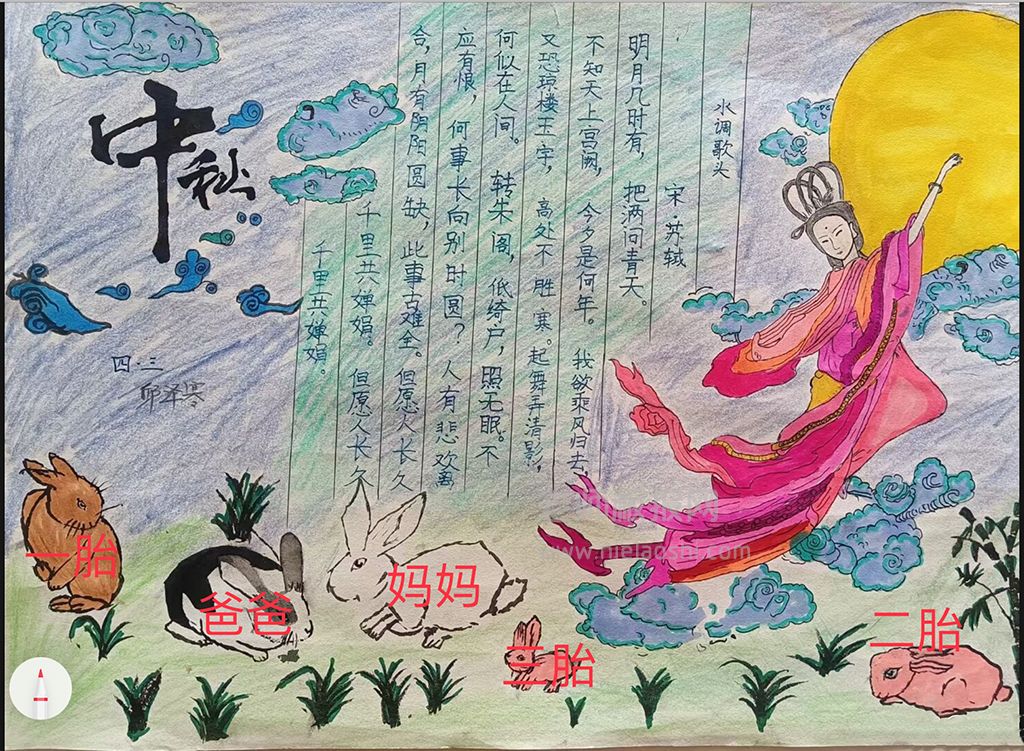 中秋
四.三
水调歌头
宋·苏轼
明月几时有，把酒问青天。
不知天上宫阙，今夕是何年。我欲乘风归去，
又恐琼楼玉宇，高处不胜寒。起舞弄清影，
何似在人间。转朱阁，低绮户，照无眠。不
应有恨，何事长向别时圆？人有悲欢离
合，月有阴阳圆缺，此事古难全。但愿人长久
千里共婵娟。但愿人长久
千里共婵娟。
一胎
爸爸
妈妈
三胎
二胎
www.nielaoshi.com